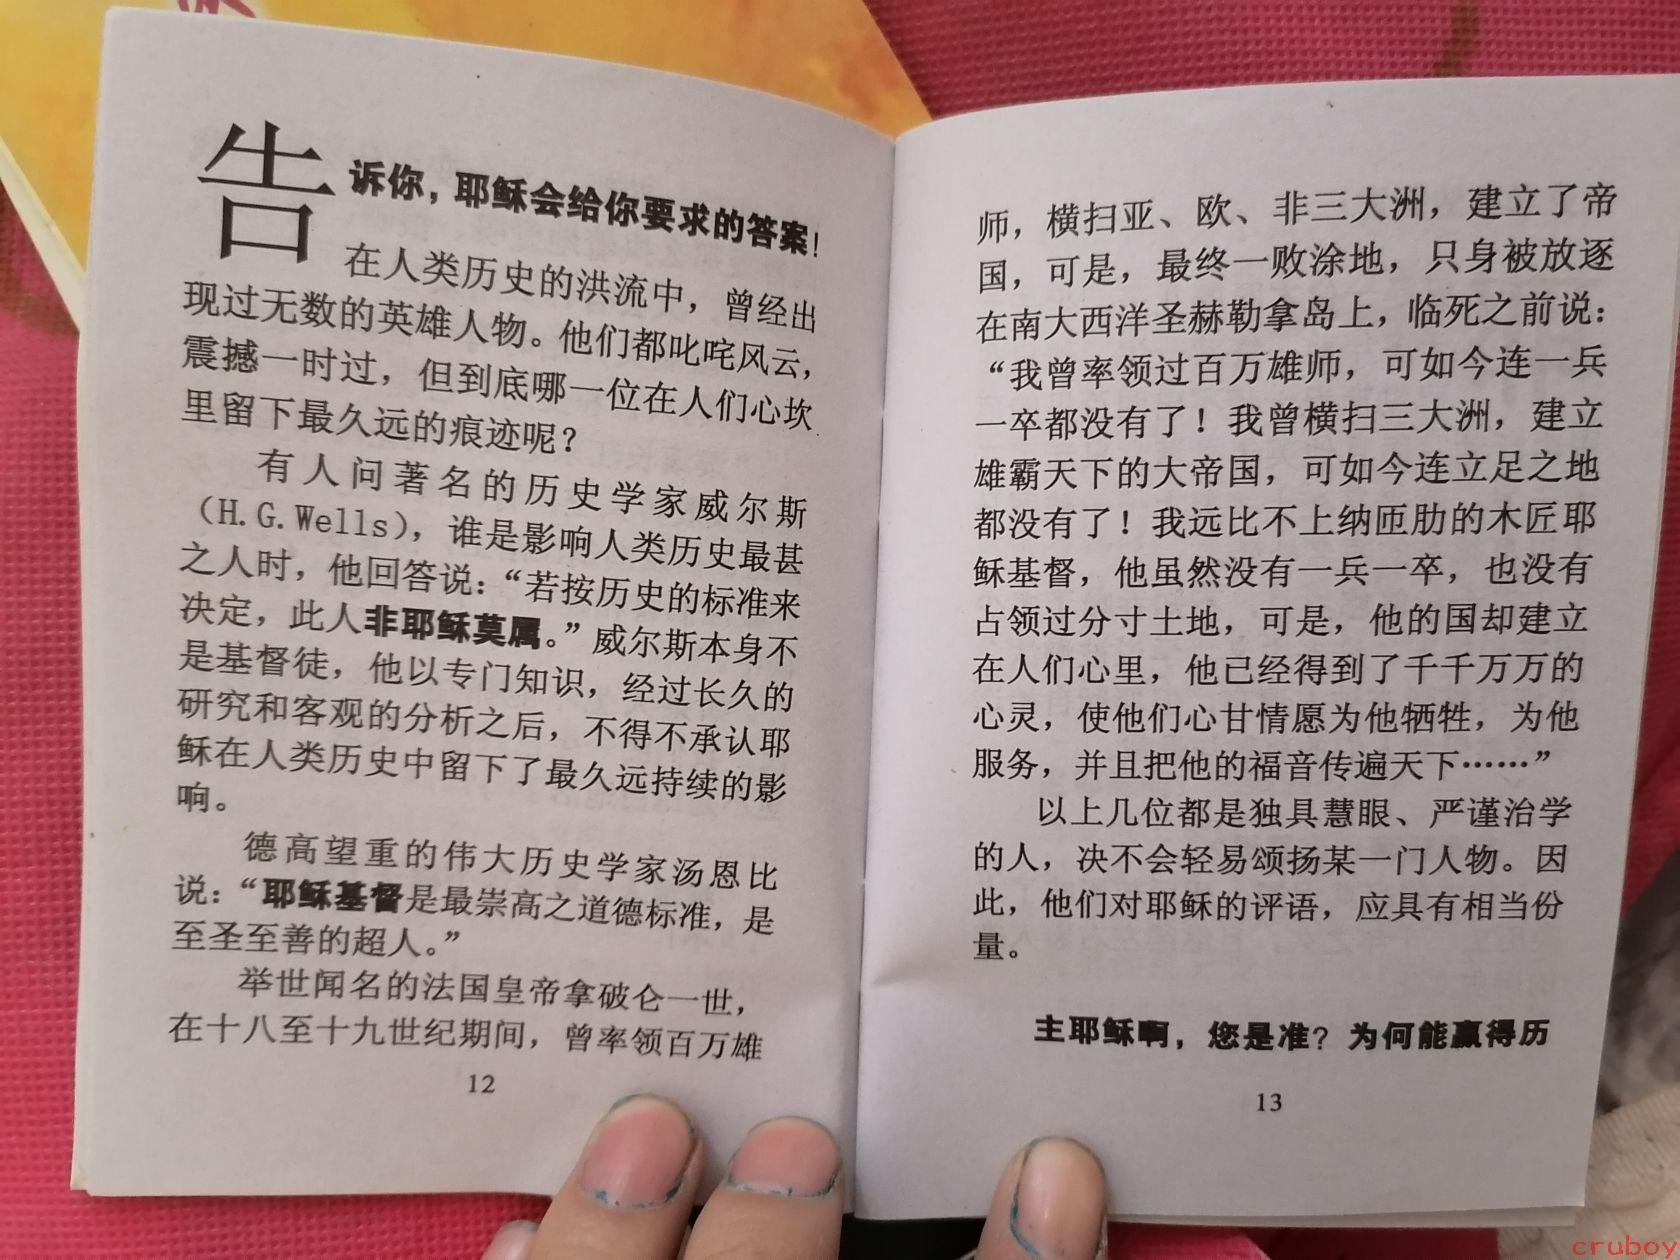 告诉你，耶稣会给你要求的答案！
在人类历史的洪流中，曾经出
现过无数的英雄人物。他们都叱咤风云，
震撼一时过，但到底哪一位在人们心坎
里留下最久远的痕迹呢？
有人问著名的历史学家威尔斯
（H.G.Wells），谁是影响人类历史最甚
之人时，他回答说：“若按历史的标准来
决定，此人非耶稣莫属。”威尔斯本身不
是基督徒，他以专门知识，经过长久的
研究和客观的分析之后，不得不承认耶
稣在人类历史中留下了最久远持续的影
响。
德高望重的伟大历史学家汤恩比
说：“耶稣基督是最崇高之道德标准，是
至圣至善的超人。”
举世闻名的法国皇帝拿破仑一世，
在十八至十九世纪期间，曾率领百万雄
12
师，横扫亚、欧、非三大洲，建立了帝
国，可是，最终一败涂地，只身被放逐
在南大西洋圣赫勒拿岛上，临死之前说：
“我曾率领过百万雄师，可如今连一兵
一卒都没有了！我曾横扫三大洲，建立
雄霸天下的大帝国，可如今连立足之地
都没有了！我远比不上纳匝肋的木匠耶
稣基督，他虽然没有一兵一卒，也没有
占领过分寸土地，可是，他的国却建立
在人们心里，他已经得到了千千万万的
心灵，使他们心甘情愿为他牺牲，为他
服务，并且把他的福音传遍天下……”
以上几位都是独具慧眼、严谨治学
的人，决不会轻易颂扬某一门人物。因
此，他们对耶稣的评语，应具有相当份
量。
主耶稣啊，您是准？为何能赢得历
13
cruboy